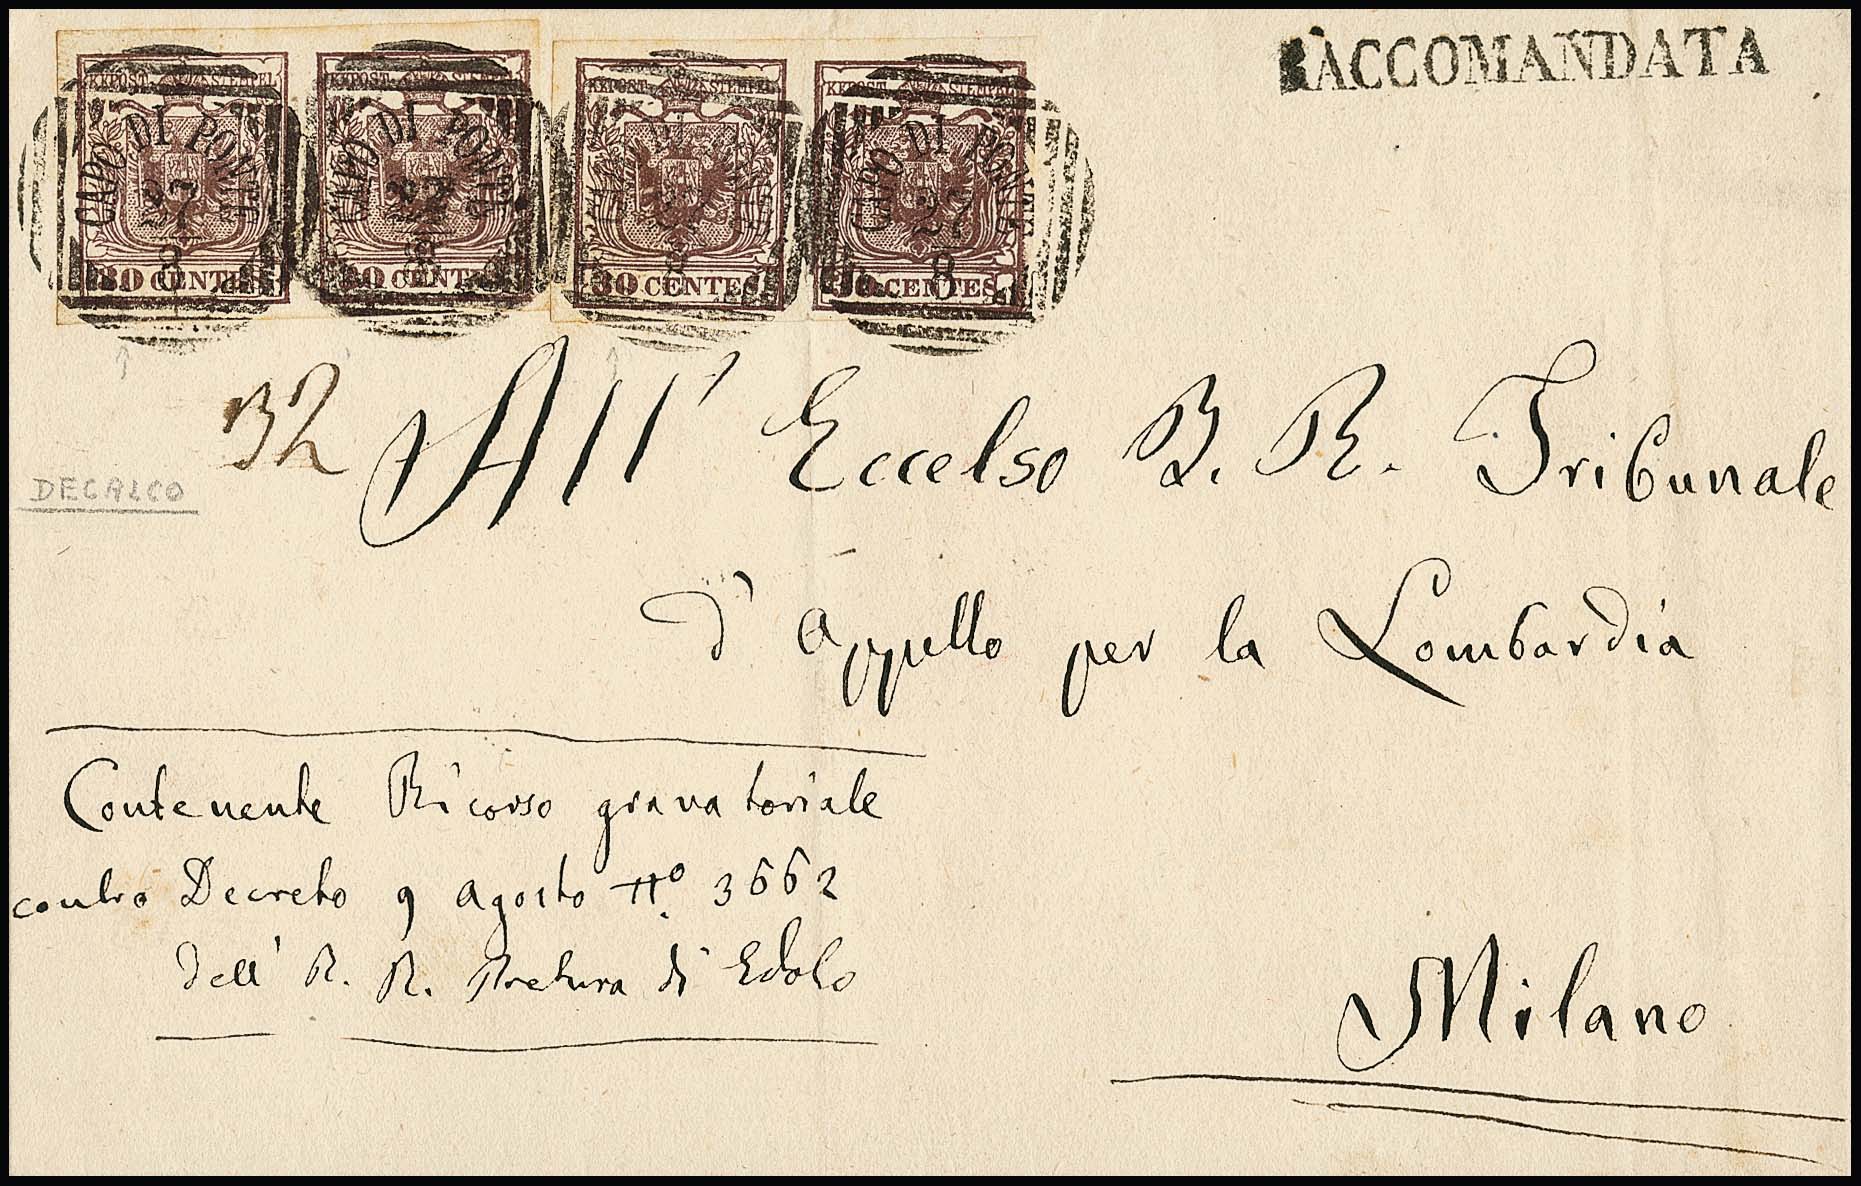 RACCOMANDATA
KKPOST-STEMPEL KKPOST-STEMPEL KKPOST-STEMPEL KKPOST-STEMPEL
CAPO DI PONTE CAPO DI PONTE CAPO DI PONTE
27 27 27
8 8 8 8
30 CENTES. 30 CENTES. 30 CENTES. 30 CENTES.
32
All' Eccelso I. R. Tribunale
DECALCO
d'appello per la Lombardia
Contenente Ricorso gravatoriale
contro Decreto 9 agosto N.º 3662
dell' I. R. Pretura di Edolo
Milano